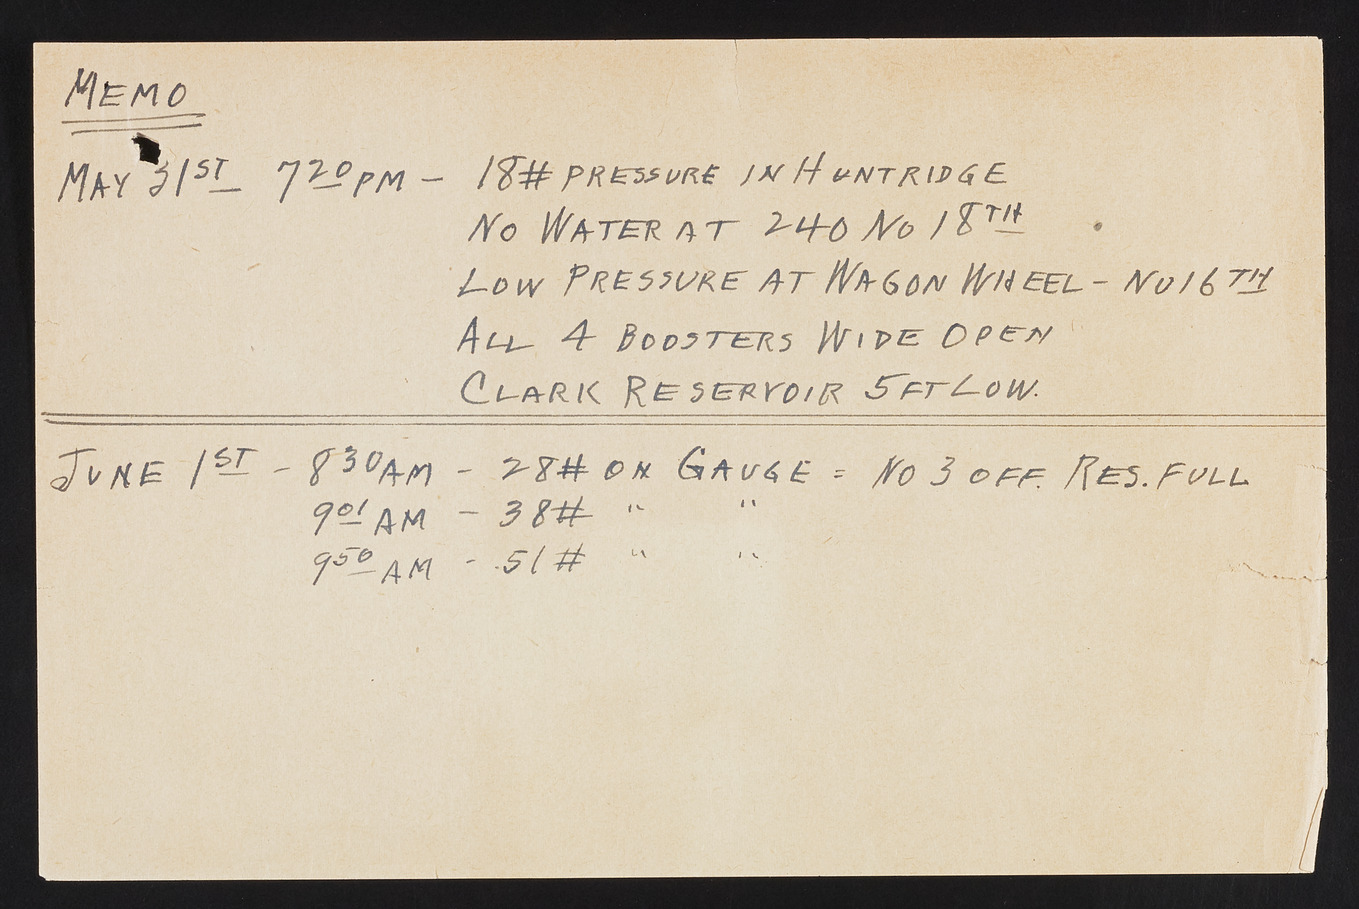 MEMO
MAY 31ST 720PM – 18# PRESSURE IN HUNTRIDGE
NO WATER AT 240 NO 18TH
LOW PRESSURE AT WAGON WHEEL – NO 16TH
ALL 4 BOOSTERS WIDE OPEN
CLARK RESERVOIR 5 FT LOW.
JUNE 1ST – 830AM – 28# ON GAUGE = NO 3 OFF. RES. FULL
901 AM – 38# " "
950 AM - 51# " "